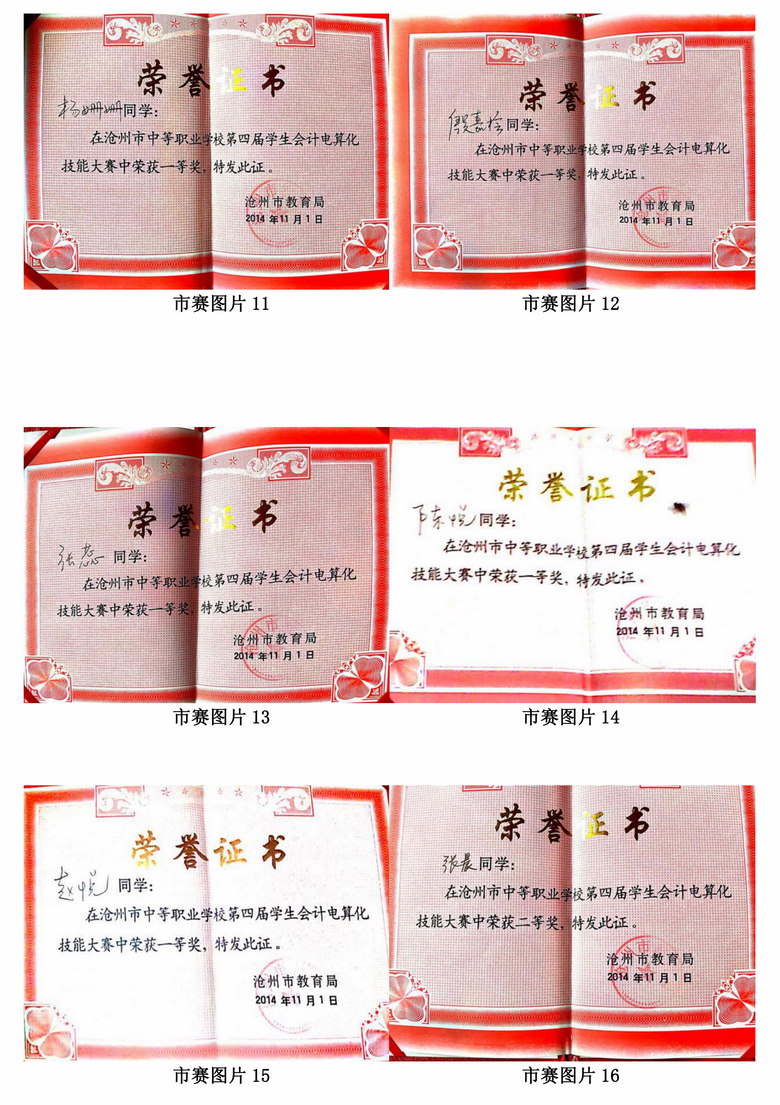 荣誉证书
杨姗姗同学：
在沧州市中等职业学校第四届学生会计电算化
技能大赛中荣获一等奖，特发此证。
沧州市教育局
2014 年 11 月 1 日
市赛图片 11
荣誉证书
同学：
在沧州市中等职业学校第四届学生会计电算化
技能大赛中荣获一等奖，特发此证。
沧州市教育局
2014 年 11 月 1 日
市赛图片 12
荣誉证书
张 同学：
在沧州市中等职业学校第四届学生会计电算化
技能大赛中荣获一等奖，特发此证。
沧州市教育局
2014 年 11 月 1 日
市赛图片 13
荣誉证书
陈悦同学：
在沧州市中等职业学校第四届学生会计电算化
技能大赛中荣获一等奖，特发此证。
沧州市教育局
2014 年 11 月 1 日
市赛图片 14
荣誉证书
赵悦 同学：
在沧州市中等职业学校第四届学生会计电算化
技能大赛中荣获一等奖，特发此证。
沧州市教育局
2014 年 11 月 1 日
市赛图片 15
荣誉证书
张晨同学：
在沧州市中等职业学校第四届学生会计电算化
技能大赛中荣获二等奖，特发此证。
沧州市教育局
2014 年 11 月 1 日
市赛图片 16